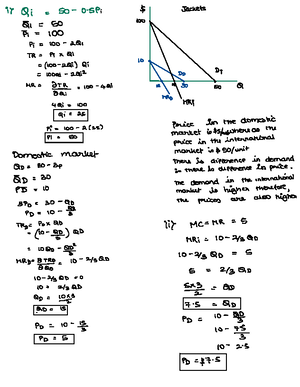 i) Qi = 50 - 0.5Pi
Qi = 50
Pi = 100
Pi = 100 - 2Qi
TR = Pi x Qi
= (100 - 2Qi) Qi
= 100Qi - 2Qi²
MR = ∂TR/∂Qi = 100 - 4Qi
4Qi = 100
Qi = 25
Pi = 100 - 2(25)
Pi = 50
Domestic market
QD = 30 - 3P
QD = 30
PD = 10
3PD = 30 - QD
PD = 10 - QD/3
TRD = PD x QD
= (10 - QD/3) QD
= 10QD - QD²/3
MRD = ∂TRD/∂QD = 10 - 2/3 QD
10 - 2/3 QD = 0
10 = 2/3 QD
QD = 10x3/2
QD = 15
PD = 10 - 15/3
PD = 5
$
Jackets
100
10
DD
DI
30
Q
MRD
MRI
Price in the domestic
market is $5/unit whereas the
price in the international
market is $50/unit
There is difference in demand
so there is difference in price.
The demand in the international
market is higher therefore,
the prices are also higher
ii) MC = MR = 5
MRi = 10 - 2/3 QD
10 - 2/3 QD = 5
5 = 2/3 QD
5x3/2 = QD
7.5 = QD
PD = 10 - QD/3
10 - 7.5/3
10 - 2.5
PD = $7.5